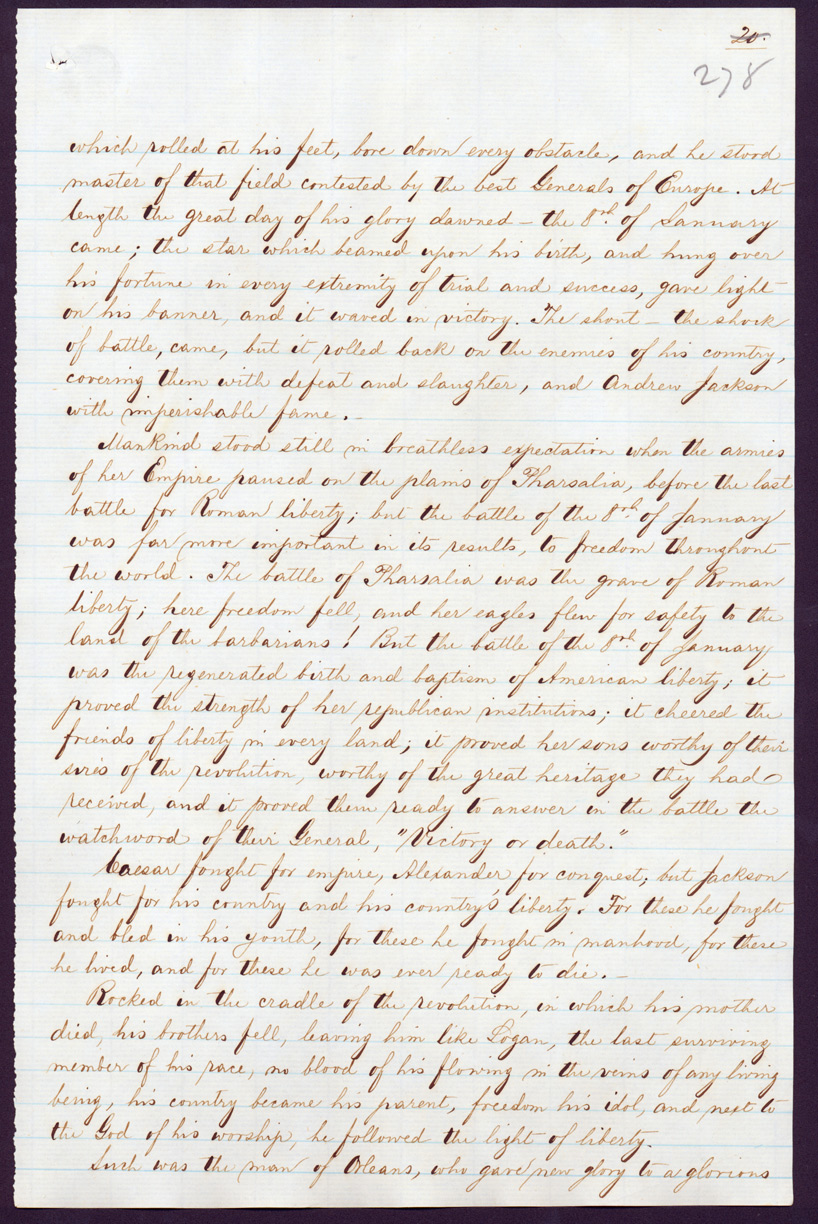 20.
278
which rolled at his feet, bore down every obstacle, and he stood
master of that field contested by the best Generals of Europe. At
length the great day of his glory dawned – the 8th of January
came; the star which beamed upon his birth, and hung over
his fortune in every extremity of trial and success, gave light
on his banner, and it waved in victory. The shout – the shock
of battle, came, but it rolled back on the enemies of his country,
covering them with defeat and slaughter, and Andrew Jackson
with imperishable fame. –
Mankind stood still in breathless expectation when the armies
of her Empire paused on the plains of Pharsalia, before the last
battle for Roman liberty; but the battle of the 8th of January
was far more important in its results, to freedom throughout
the world. The battle of Pharsalia was the grave of Roman
liberty; here freedom fell, and her eagles flew for safety to the
land of the barbarians! But the battle of the 8th of January
was the regenerated birth and baptism of American liberty; it
proved the strength of her republican institutions; it cheered the
friends of liberty in every land; it proved her sons worthy of their
sires of the revolution, worthy of the great heritage they had
received, and it proved them ready to answer in the battle the
watchword of their General, "Victory or death."
Caesar fought for empire, Alexander for conquest; but Jackson
fought for his country and his country's liberty. For these he fought
and bled in his youth, for these he fought in manhood, for these
he lived, and for these he was ever ready to die. –
Rocked in the cradle of the revolution, in which his mother
died, his brothers fell, leaving him like Logan, the last surviving
member of his race, no blood of his flowing in the veins of any living
being, his country became his parent, freedom his idol, and next to
the God of his worship, he followed the light of liberty.
Such was the man of Orleans, who gave new glory to a glorious